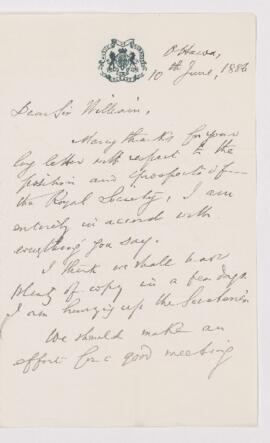 Ottawa,
10th June, 1886
Dear Sir William,
Many thanks for your
long letter with respect to the
position and prospects of
the Royal Society, I am
entirely in accord with
everything you say.
I think we shall have
plenty of copy in a few days
I am hurrying up the
We should make an
effort for a good meeting